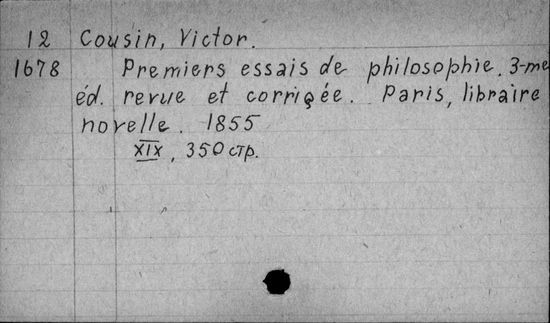 12 Cousin, Victor.
1678 Premiers essais de philosophie. 3-me
éd. revue et corrigée. Paris, libraire
novelle. 1855
XIX, 350 стр.